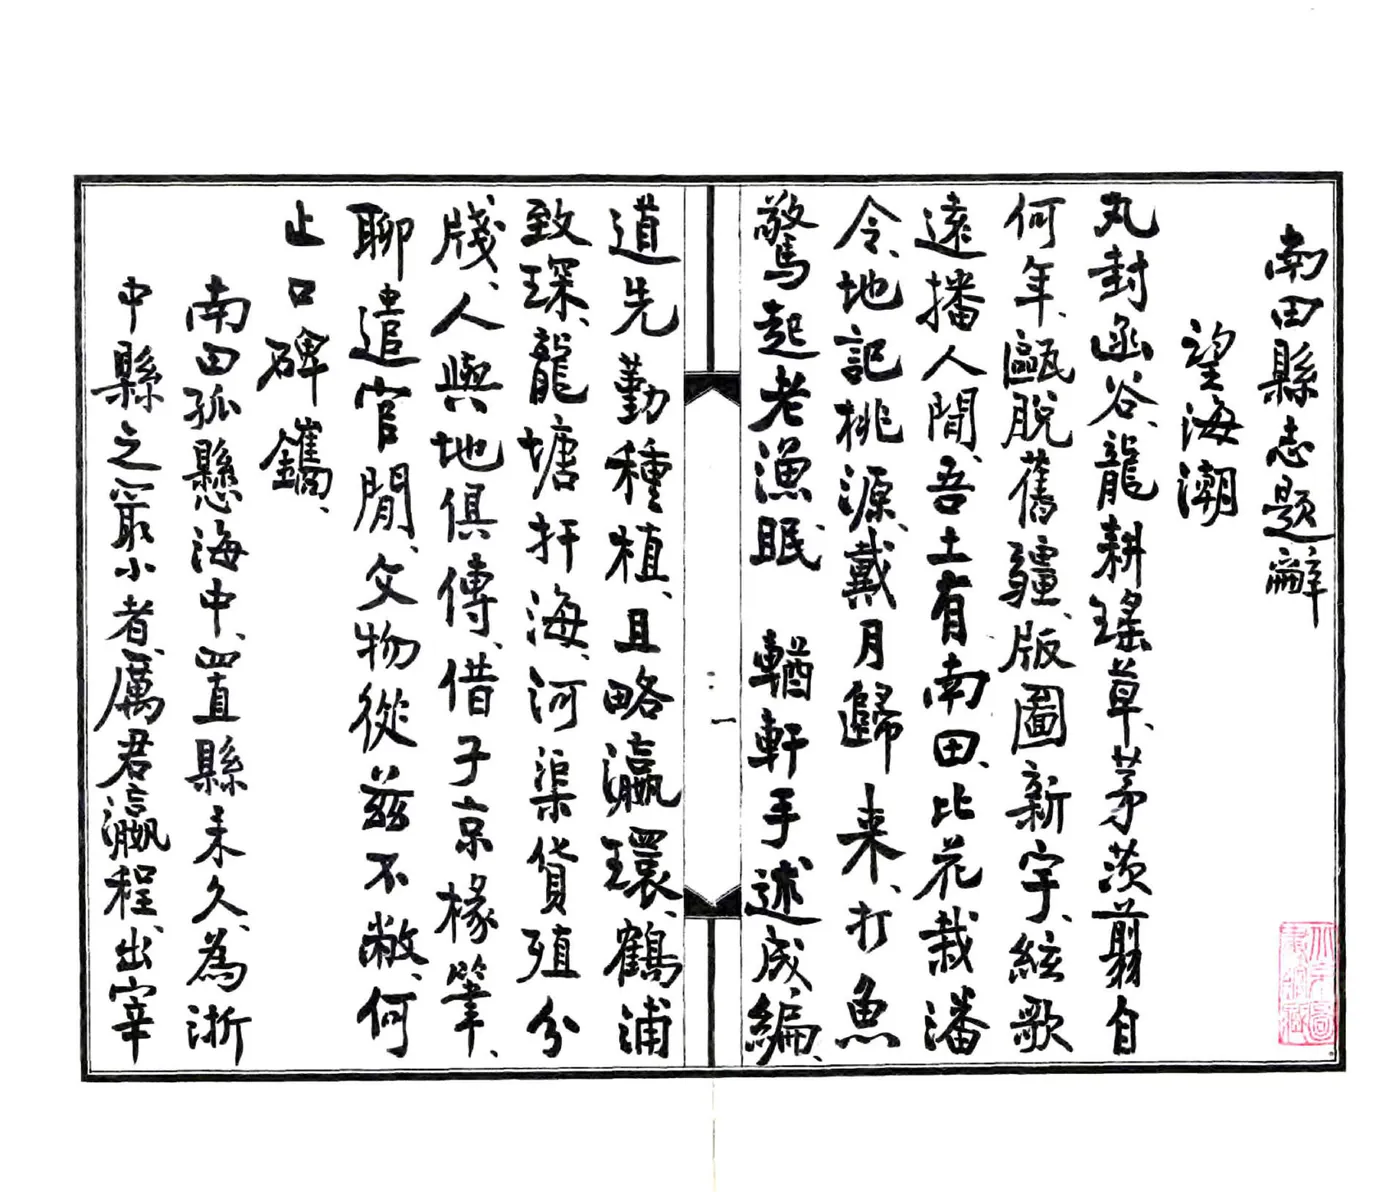 南田縣志題辭
望海潮
丸封函谷、龍耕瑤草、茅茨翦自
何年、甌脫舊疆、版圖新宇、絃歌
遠播人間、吾土有南田、比花栽潘
令、地記桃源、戴月歸来、打魚
驚起老漁眠、 輶軒手述成編、
道先勤種植、且略瀛環、鶴浦
致琛、龍塘扞海、河渠貨殖分
牋、人與地俱傳、借子京椽筆、
聊遣官閒、文物從茲不敝、何
止口碑鐫、
南田孤懸海中、置縣未久、為浙
中縣之最小者、厲君瀛程、出宰
一